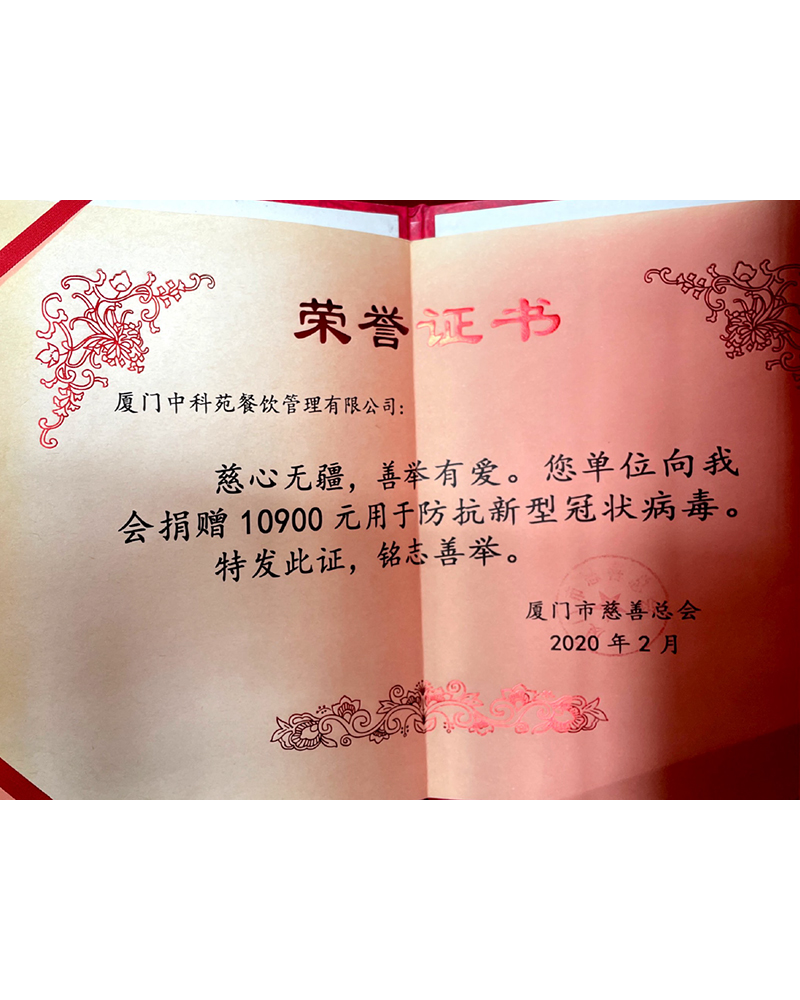 荣誉证书
厦门中科苑餐饮管理有限公司：
慈心无疆，善举有爱。您单位向我
会捐赠 10900 元用于防抗新型冠状病毒。
特发此证，铭志善举。
厦门市慈善总会
2020 年 2 月